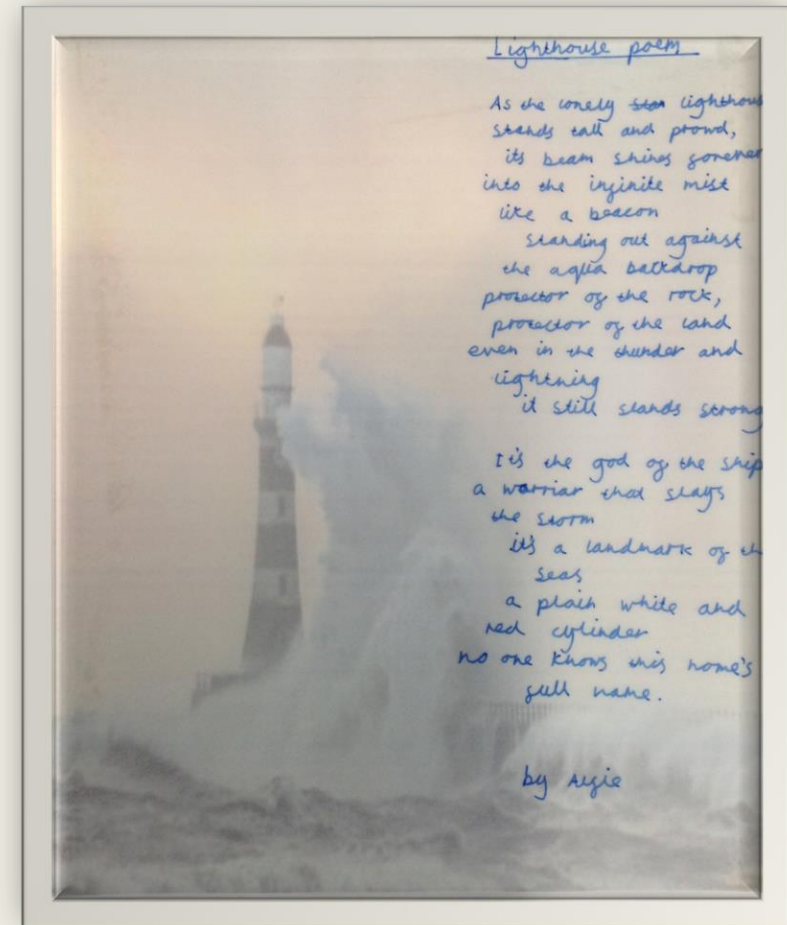 Lighthouse poem
As the lonely lighthous
stands tall and proud,
its beam shines forever
into the infinite mist
like a beacon
standing out against
the aqua backdrop
protector of the rock,
protector of the land
even in the thunder and
lightning
it still stands strong
It's the god of the ship
a warriar that slays
the storm
it's a landmark of th
seas
a plain white and
red cylinder
no one knows this home's
full name.
by Alfie